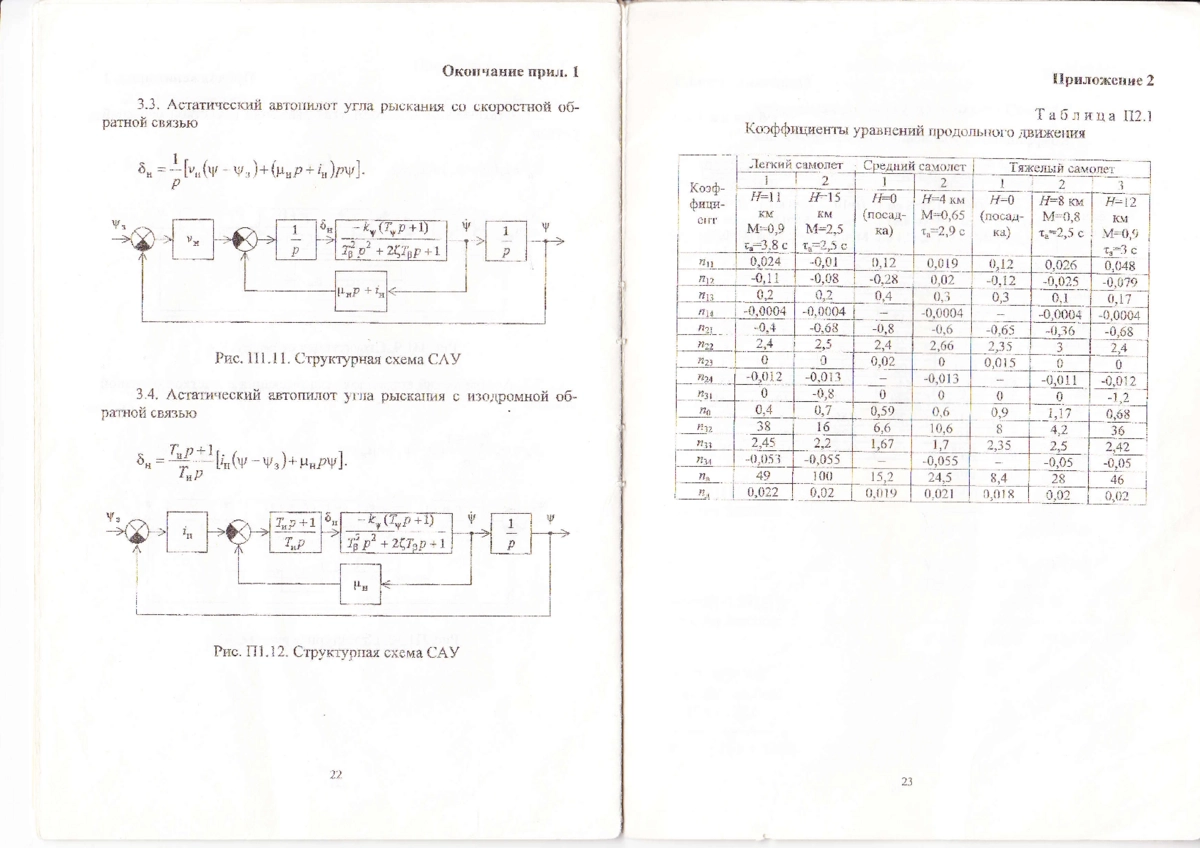 Окончание прил. 1
3.3. Астатический автопилот угла рыскания со скоростной об-
ратной связью
δн = 1/p [νн(ψ - ψз)+(μнp + iн)pψ].
ψз νн 1/p δн -kψ(Tψp+1) / Tβ²p² + 2ζTβp+1 ψ̇ 1/p ψ
μнp + iн
Рис. П1.11. Структурная схема САУ
3.4. Астатический автопилот угла рыскания с изодромной об-
ратной связью
δн = Tиp+1 / Tиp [iн(ψ - ψз)+ μнpψ].
ψз iн Tиp+1 / Tиp δн -kψ(Tψp+1) / Tβ²p² + 2ζTβp+1 ψ̇ 1/p ψ
μн
Рис. П1.12. Структурная схема САУ
22
Приложение 2
Таблица П2.1
Коэффициенты уравнений продольного движения
Коэф-
фици-
ент
Легкий самолет Средний самолет Тяжелый самолет
1 2 1 2 1 2 3
H=11 H=15 H=0 H=4 км H=0 H=8 км H=12
км км (посад- M=0,65 (посад- M=0,8 км
M=0,9 M=2,5 ка) τa=2,9 с ка) τa=2,5 с M=0,9
τa=3,8 с τa=2,5 с τa=3 с
n11 0,024 -0,01 0,12 0,019 0,12 0,026 0,048
n12 -0,11 -0,08 -0,28 0,02 -0,12 -0,025 -0,079
n13 0,2 0,2 0,4 0,3 0,3 0,1 0,17
n14 -0,0004 -0,0004 – -0,0004 – -0,0004 -0,0004
n21 -0,4 -0,68 -0,8 -0,6 -0,65 -0,36 -0,68
n22 2,4 2,5 2,4 2,66 2,35 3 2,4
n23 0 0 0,02 0 0,015 0 0
n24 -0,012 -0,013 – -0,013 – -0,011 -0,012
n31 0 -0,8 0 0 0 0 -1,2
n0 0,4 0,7 0,59 0,6 0,9 1,17 0,68
n32 38 16 6,6 10,6 8 4,2 36
n33 2,45 2,2 1,67 1,7 2,35 2,5 2,42
n34 -0,053 -0,055 – -0,055 – -0,05 -0,05
nв 49 100 15,2 24,5 8,4 28 46
0,022 0,02 0,019 0,021 0,018 0,02 0,02
23